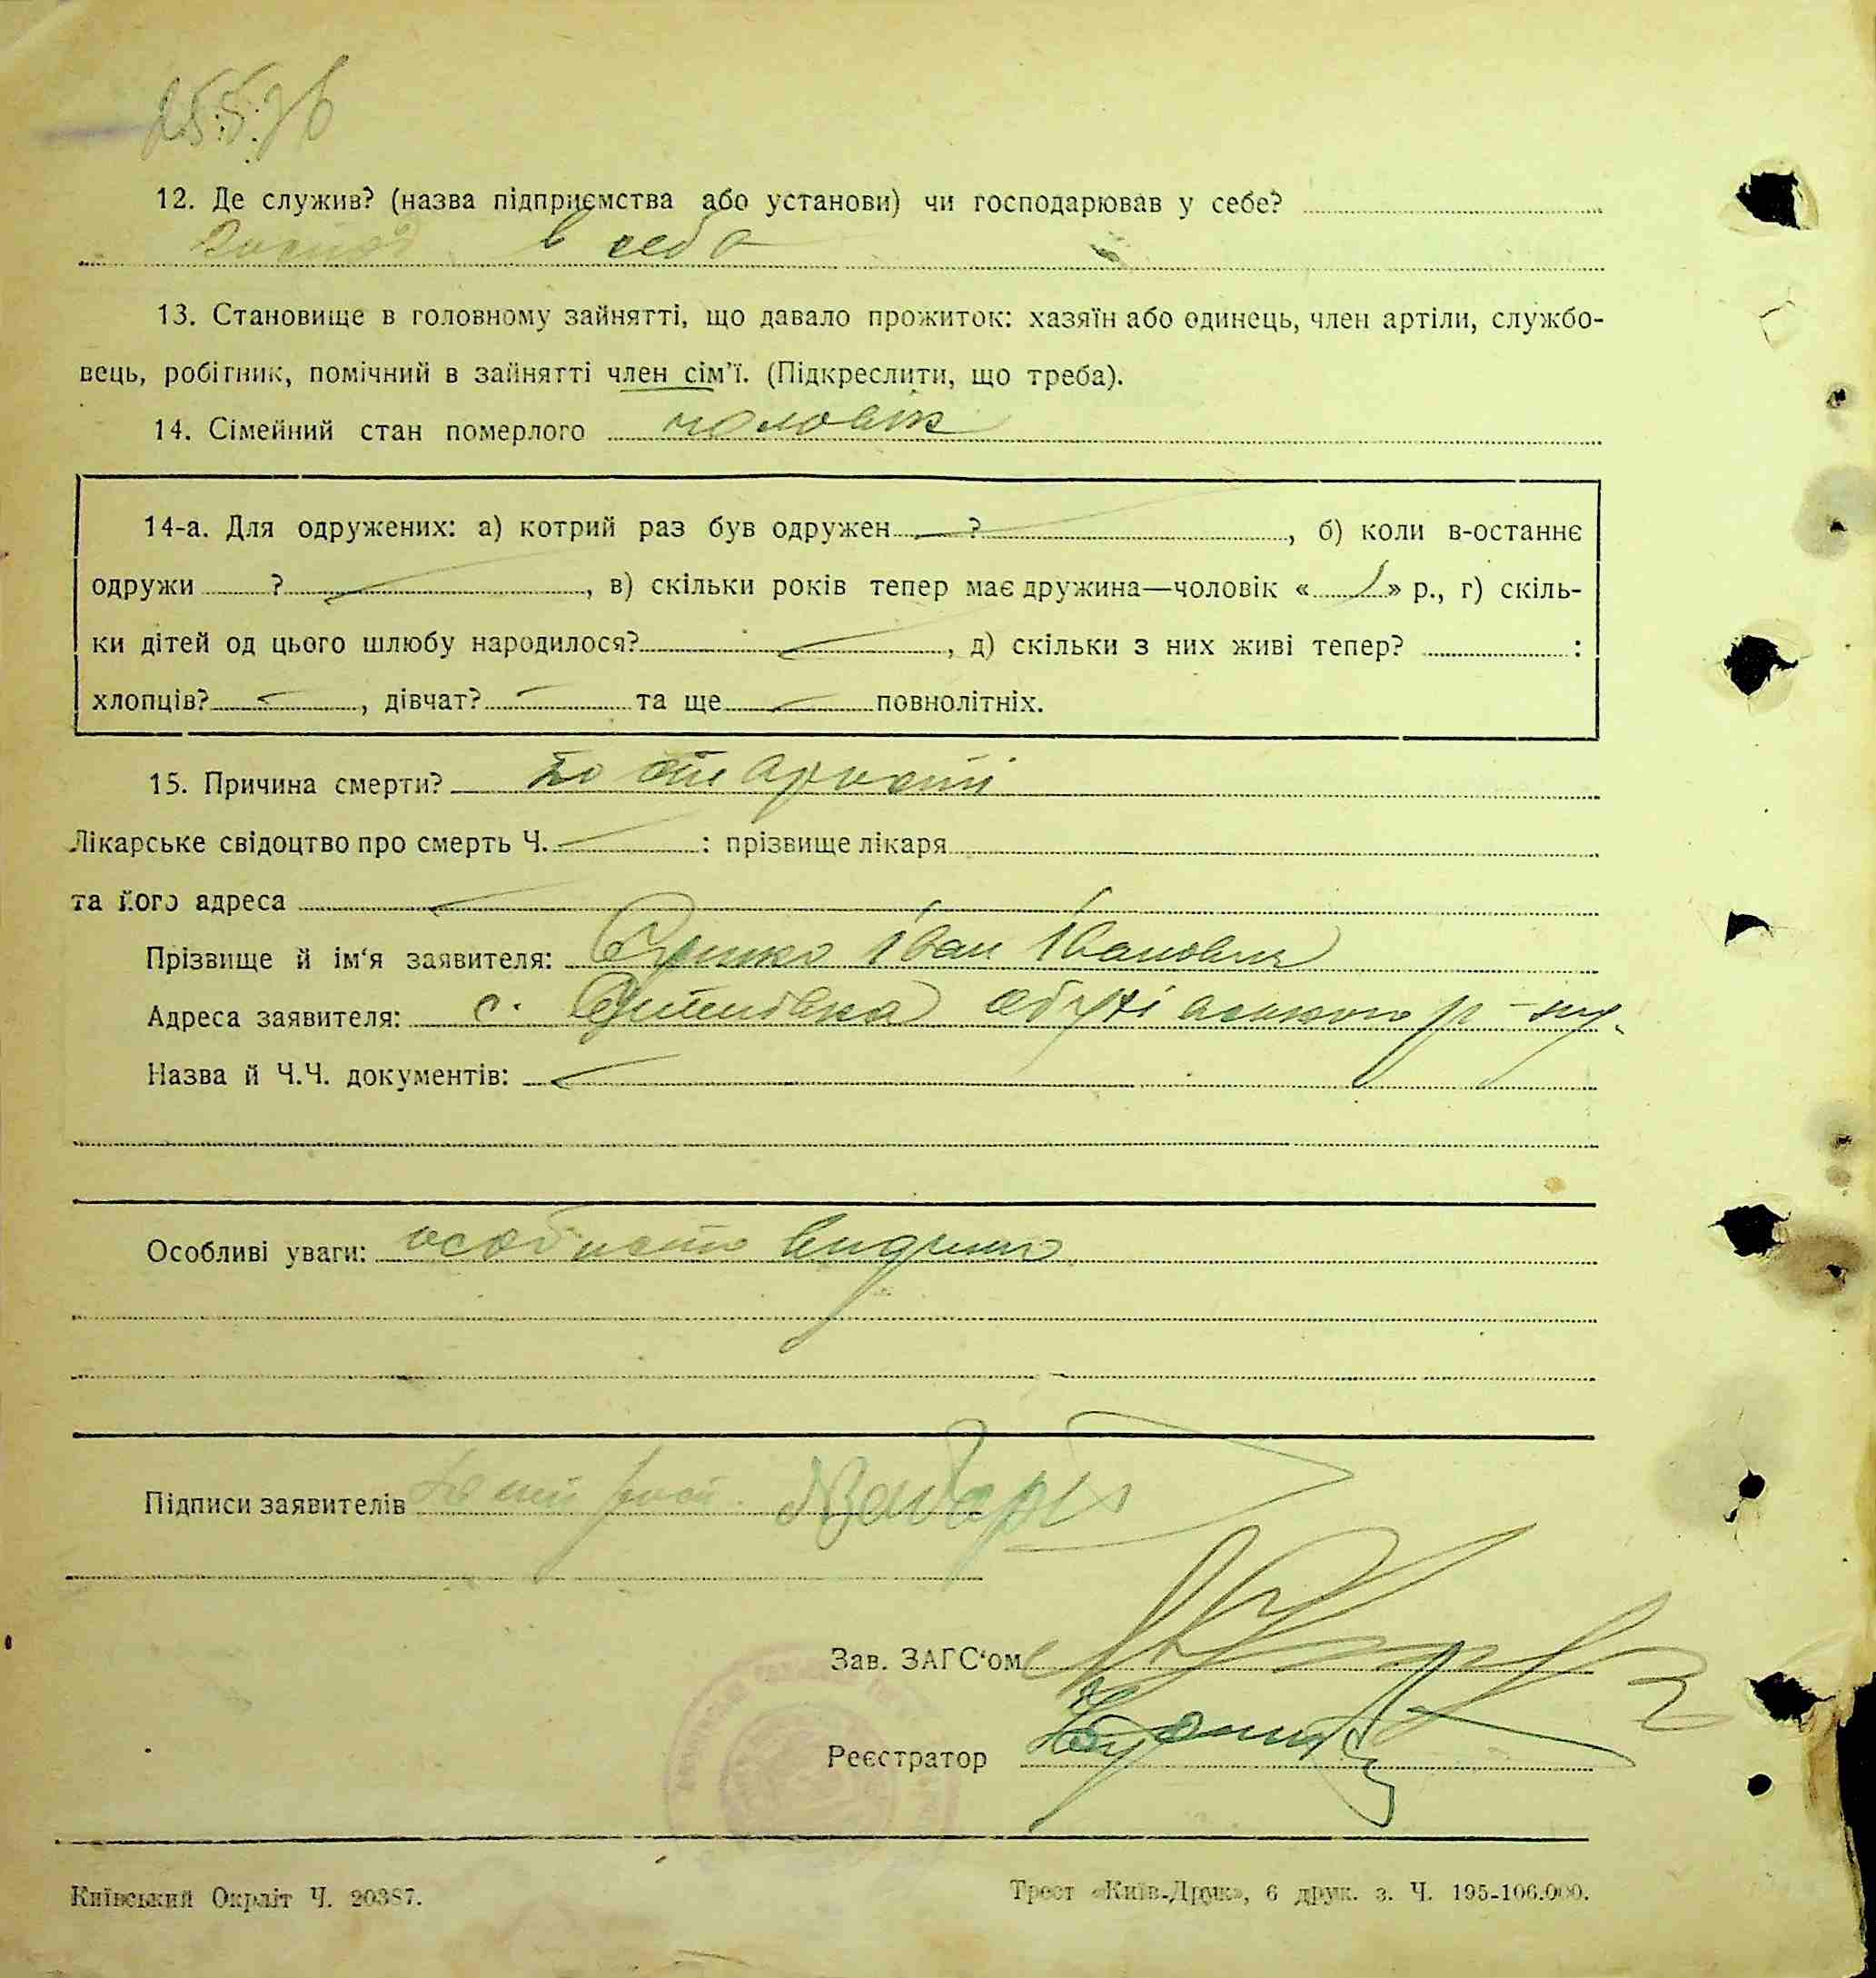 12. Де служив? (назва підприємства або установи) чи господарював у себе?
в себе
13. Становище в головному зайнятті, що давало прожиток: хазяїн або одинець, член артіли, службо-
вець, робітник, помічний в зайнятті член сім'ї. (Підкреслити, що треба).
14. Сімейний стан померлого чоловік
14-а. Для одружених: а) котрий раз був одружен ?, б) коли в-останнє
одружи ?, в) скільки років тепер має дружина—чоловік « » р., г) скіль-
ки дітей од цього шлюбу народилося?, д) скільки з них живі тепер? :
хлопців?, дівчат? та ще повнолітніх.
15. Причина смерти? по старости
Лікарське свідоцтво про смерть Ч. : прізвище лікаря
та його адреса
Прізвище й ім'я заявителя: Іван Іванович
Адреса заявителя: с. р-ну
Назва й Ч.Ч. документів:
Особливі уваги: особисто
Підписи заявителів
Зав. ЗАГС'ом
Реєстратор
Київський Окрліт Ч. 20387.
Трест «Київ-Друк», 6 друк. з. Ч. 195-106.000.